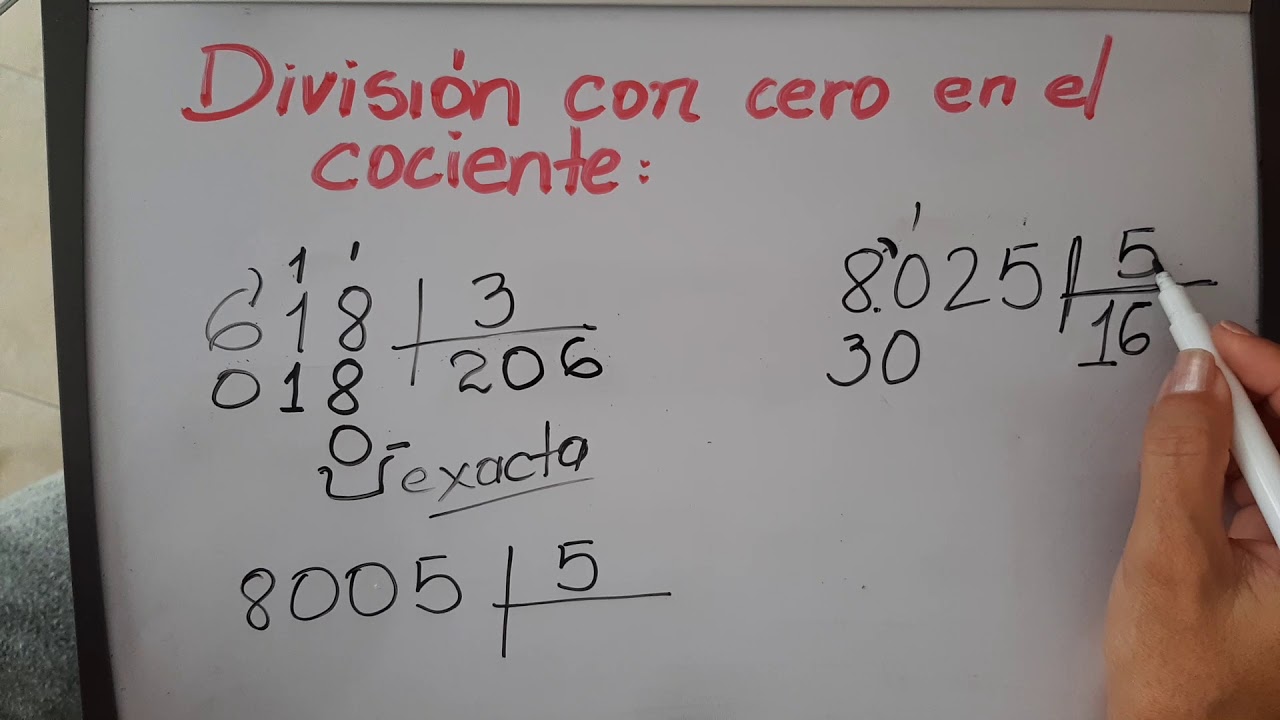 División con cero en el
cociente:
1 '
6'18 3
018 206
0 - exacta
8005 5
'
8'025 5
30 16